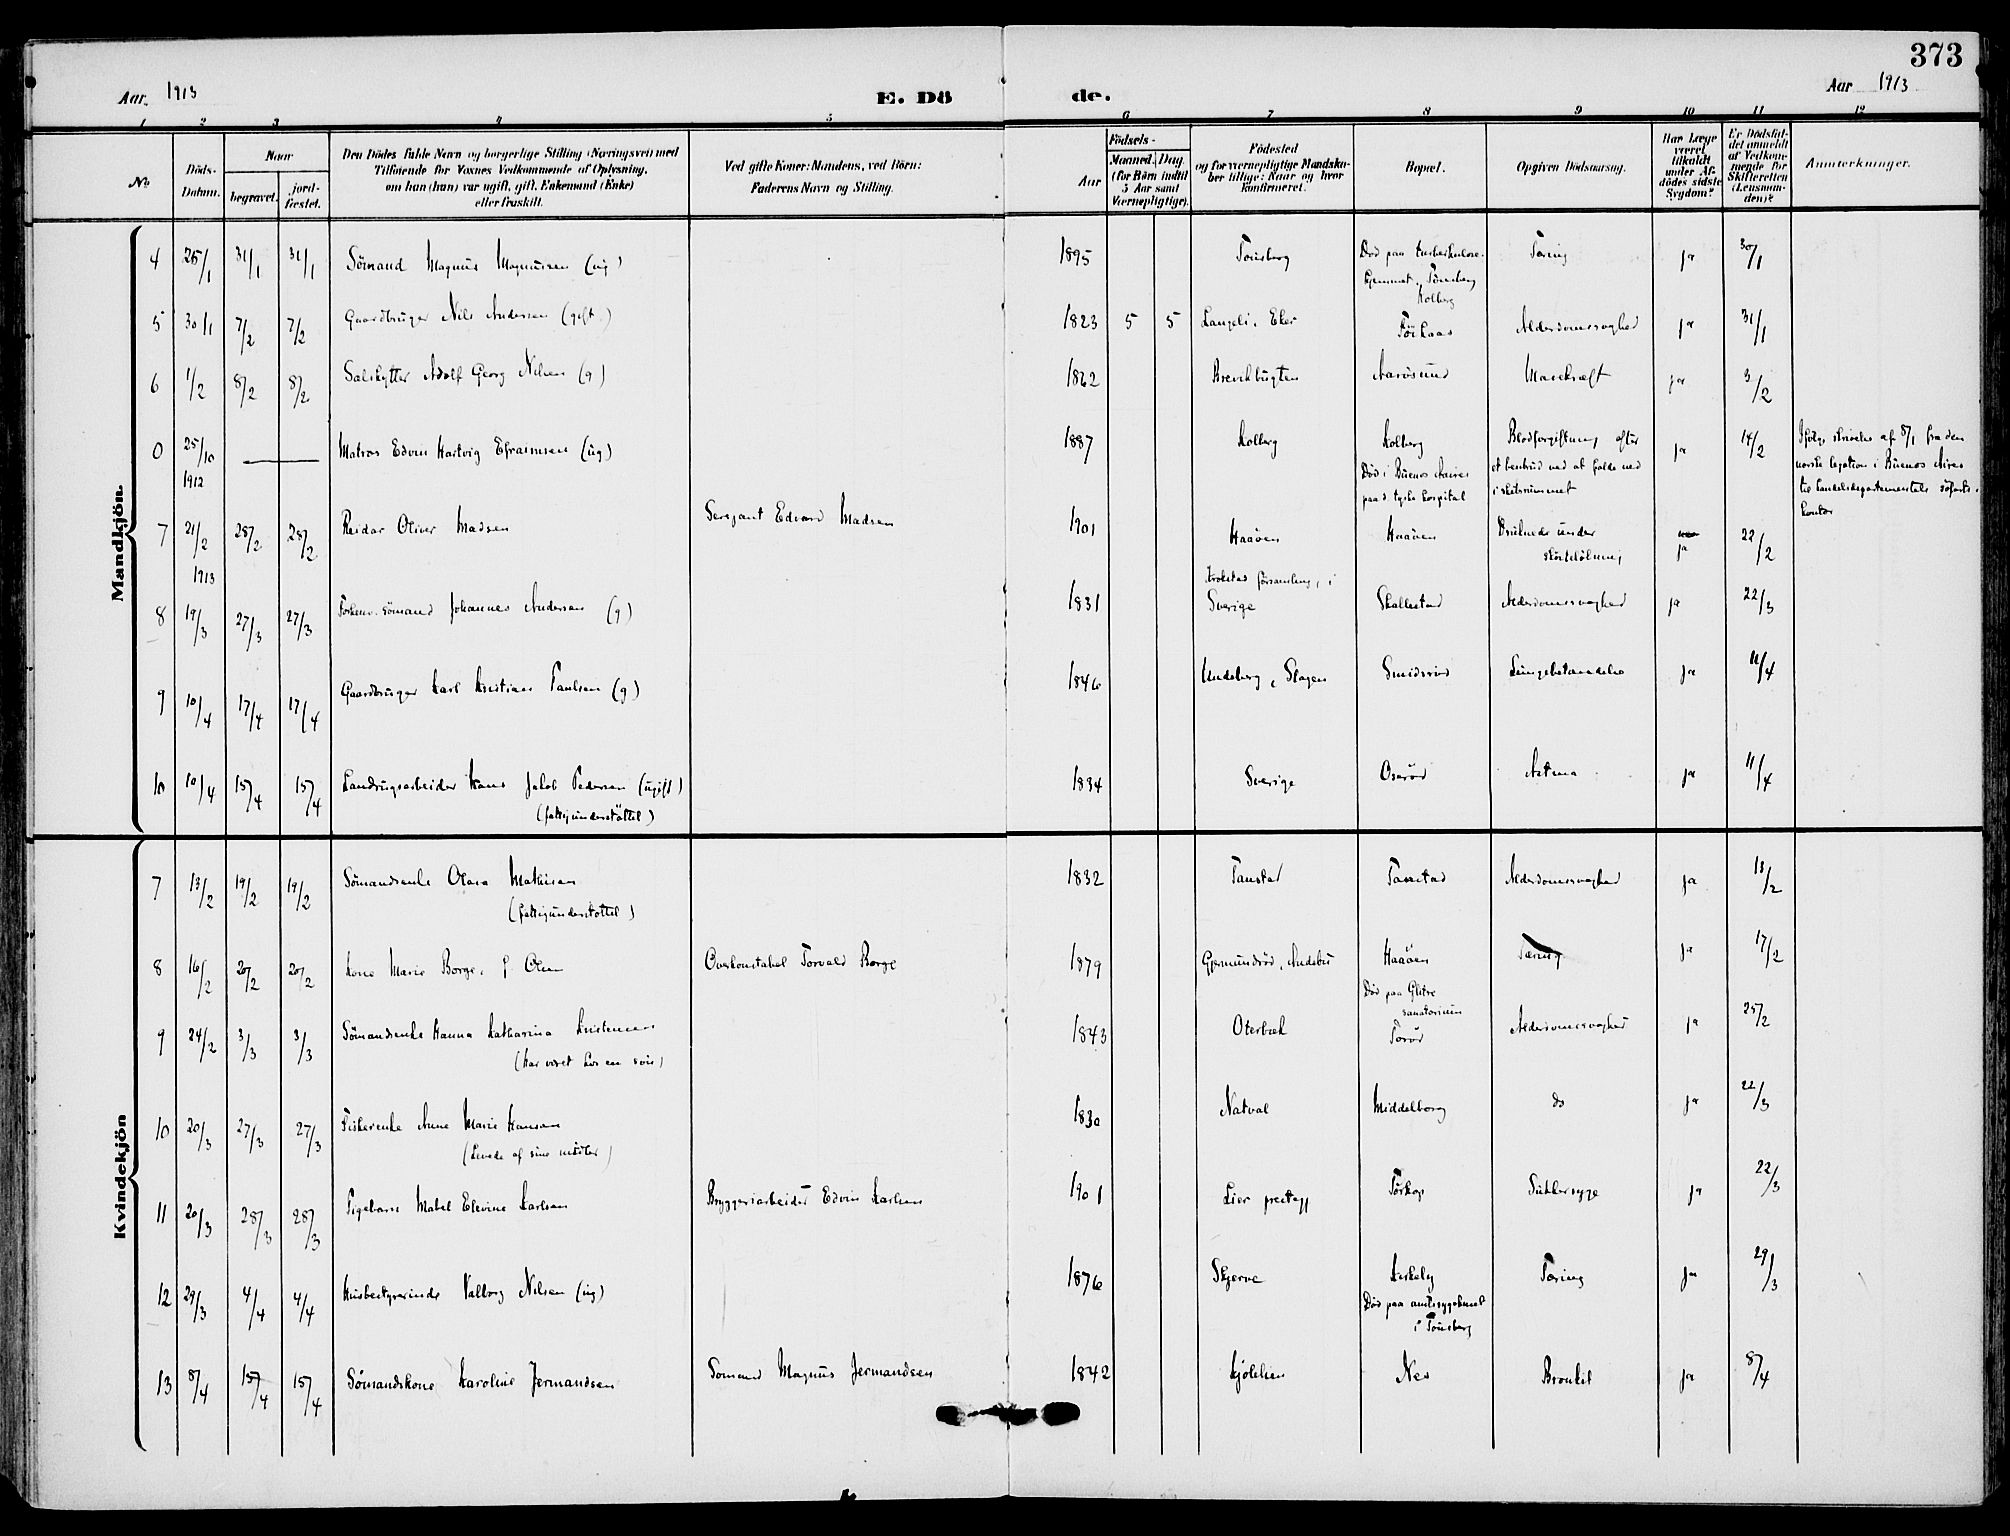 373
Aar 1913
E. Dö
de.
Aar 1913
1 2 3 4 5 6 7 8 9 10 11 12
No
Döds-
Datum.
Naar
begravet.
jord-
fæstet.
Den Dödes fulde Navn og borgerlige Stilling (Næringsvei) med
Tilföiende for Voxnes Vedkommende af Oplysning,
om hun (han) var ugift, gift, Enkemand (Enke)
eller fraskilt.
Ved gifte Koner: Mandens, ved Börn:
Faderens Navn og Stilling.
Födsels-
Aar
Maaned. Dag.
(for Börn indtil
5 Aar samt
Værnepligtige).
Födested
og for værnepligtige Mandska-
ber tillige: Naar og hvor
konfirmeret.
Bopæl.
Opgiven Dödsaarsag.
Har Læge
været
tilkaldt
under Af-
dödes sidste
Sygdom?
Er Dödsfal-
det anmeldt
af Vedkom-
mende for
Skifteretten
(Lensman-
den)?
Anmerkninger.
Mandkjön.
4 25/1 31/1 31/1 Sömand Magnus Magnussen (ug) 1895 Tönsberg Död paa tuberkulose- Tæring ja 30/1
hjemmet, Tönsberg
Kolberg
5 30/1 7/2 7/2 Gaardbruger Nils Andersen (gift.) 1823 5 5 Langeli, Eker Törkaas Alderdomssvaghed ja 31/1
6 1/2 8/2 8/2 Sælskytter Adolf Georg Nilsen (g) 1862 Brevikbugten Aarösund Mavekræft ja 3/2
0 25/10 1912 — Matros Edvin Hartvig Efraimsen (ug) 1887 Kolberg Kolberg Blodforgiftning efter ja 14/2 Ifölge skrivelse af 8/1 fra den
Död i Buenos Aaires et benbrud ved at falde ned norske legation i Buenos Aires
paa d. tyske hospital i skibsrummet til handelsdepartementets söfarts-
kontor
7 21/2 1913 28/2 28/2 Reidar Oliver Madsen Sersjant Edvard Madsen 1901 Haaöen Haaöen Druknede under ja 22/2
sköiteløbning
8 19/3 27/3 27/3 Forhenv. sömand Johannes Andersen (g) 1831 Krokstad forsamling, i Sverige Skallestad Alderdomssvaghed ja 22/3
9 10/4 17/4 17/4 Gaardbruger Karl Kristian Paulsen (g) 1846 Undeberg, Slagen Smidsröd Lungebetændelse ja 11/4
10 10/4 15/4 15/4 Landbrugsarbeider Hans Jakob Pedersen (ugift) 1834 Sverige Oseröd Astma ja 11/4
(fattigunderstöttet)
Kvindekjön
7 13/2 19/2 19/2 Sömandsenke Olava Mathisen 1832 Tanstad Tanstad Alderdomssvaghed ja 13/2
(fattigunderstöttet)
8 16/2 20/2 20/2 Kone Marie Borge, f. Olsen Overkonstabel Torvald Borge 1879 Gjermundröd, Andebu Haaöen Tæring ja 17/2
Död paa Glitre
sanatorium
9 24/2 3/3 3/3 Sömandsenke Hanna Katharina Kristensen 1843 Oterbæk Toröd Alderdomssvaghed ja 25/2
(har været hos en svi)
10 20/3 27/3 27/3 Fiskerenke Anne Marie Hansen 1830 Natval Middelborg do ja 22/3
(Levede af sine midler)
11 20/3 28/3 28/3 Pigebarn Mabel Elevine Karlsen Bryggeriarbeider Edvin Karlsen 1901 Lier prestegj Törkop Sukkersyge ja 22/3
12 29/3 4/4 4/4 Husbestyrerinde Valborg Nilsen (ug) 1876 Skjerve Kirkely Tæring ja 29/3
Död paa amtssygehuset
i Tönsberg
13 8/4 15/4 15/4 Sömandskone Karoline Jermandsen Sömand Magnus Jermandsen 1842 Kjölelien Nes Bronkit ja 8/4